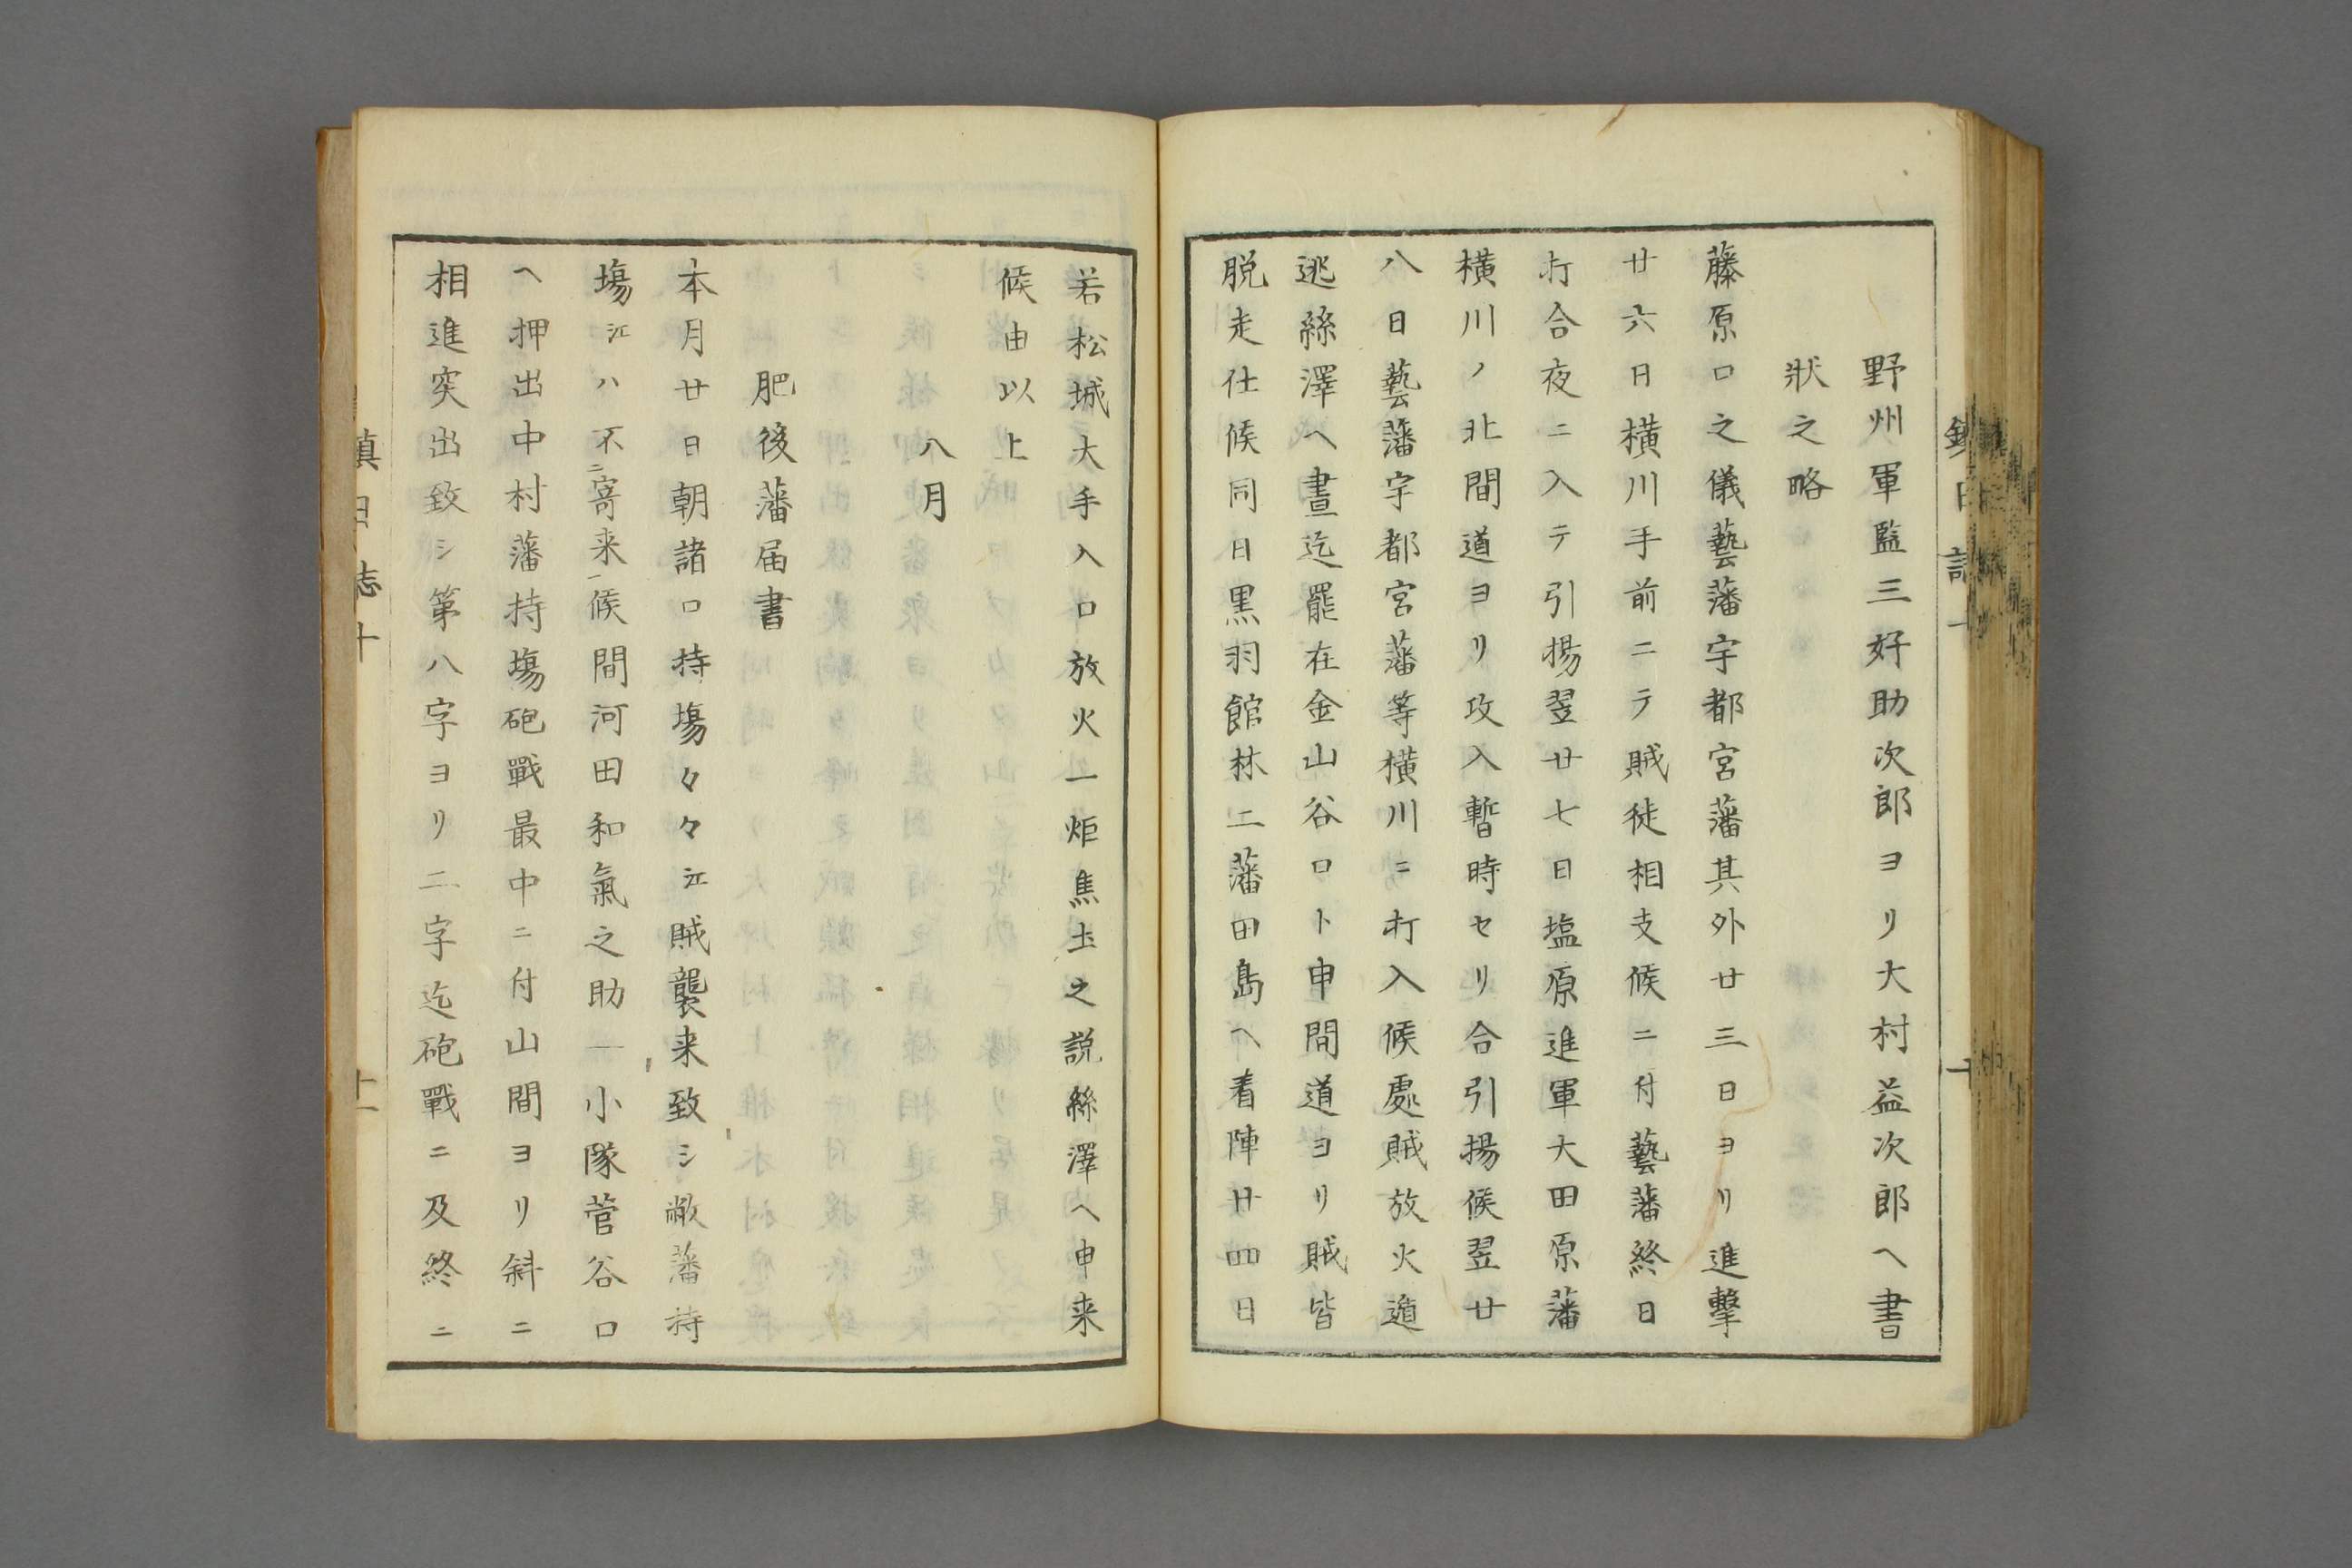 野州軍監三好助次郎ヨリ大村益次郎ヘ書
狀之略
藤原口之儀藝藩宇都宮藩其外廿三日ヨリ進擊
廿六日橫川手前ニテ賊徒相支候ニ付藝藩終日
打合夜ニ入テ引揚翌廿七日塩原進軍大田原藩
橫川ノ北間道ヨリ攻入暫時セリ合引揚候翌廿
八日藝藩宇都宮藩等橫川ニ打入候處賊放火遁
逃絲澤ヘ晝迄罷在金山谷口ト申間道ヨリ賊皆
脫走仕候同日黒羽館林二藩田島ヘ着陣廿四日
若松城大手入口放火一炬焦土之説絲澤ヘ申来
候由以上
八月
肥後藩届書
本月廿日朝諸口持塲々々江賊襲来致シ敝藩持
塲江ハ不ニ寄来一候間河田和氣之助一小隊菅谷口
ヘ押出中村藩持塲砲戰最中ニ付山間ヨリ斜ニ
相進突出致シ第八字ヨリ二字迄砲戰ニ及終ニ
鎮日志十
十一